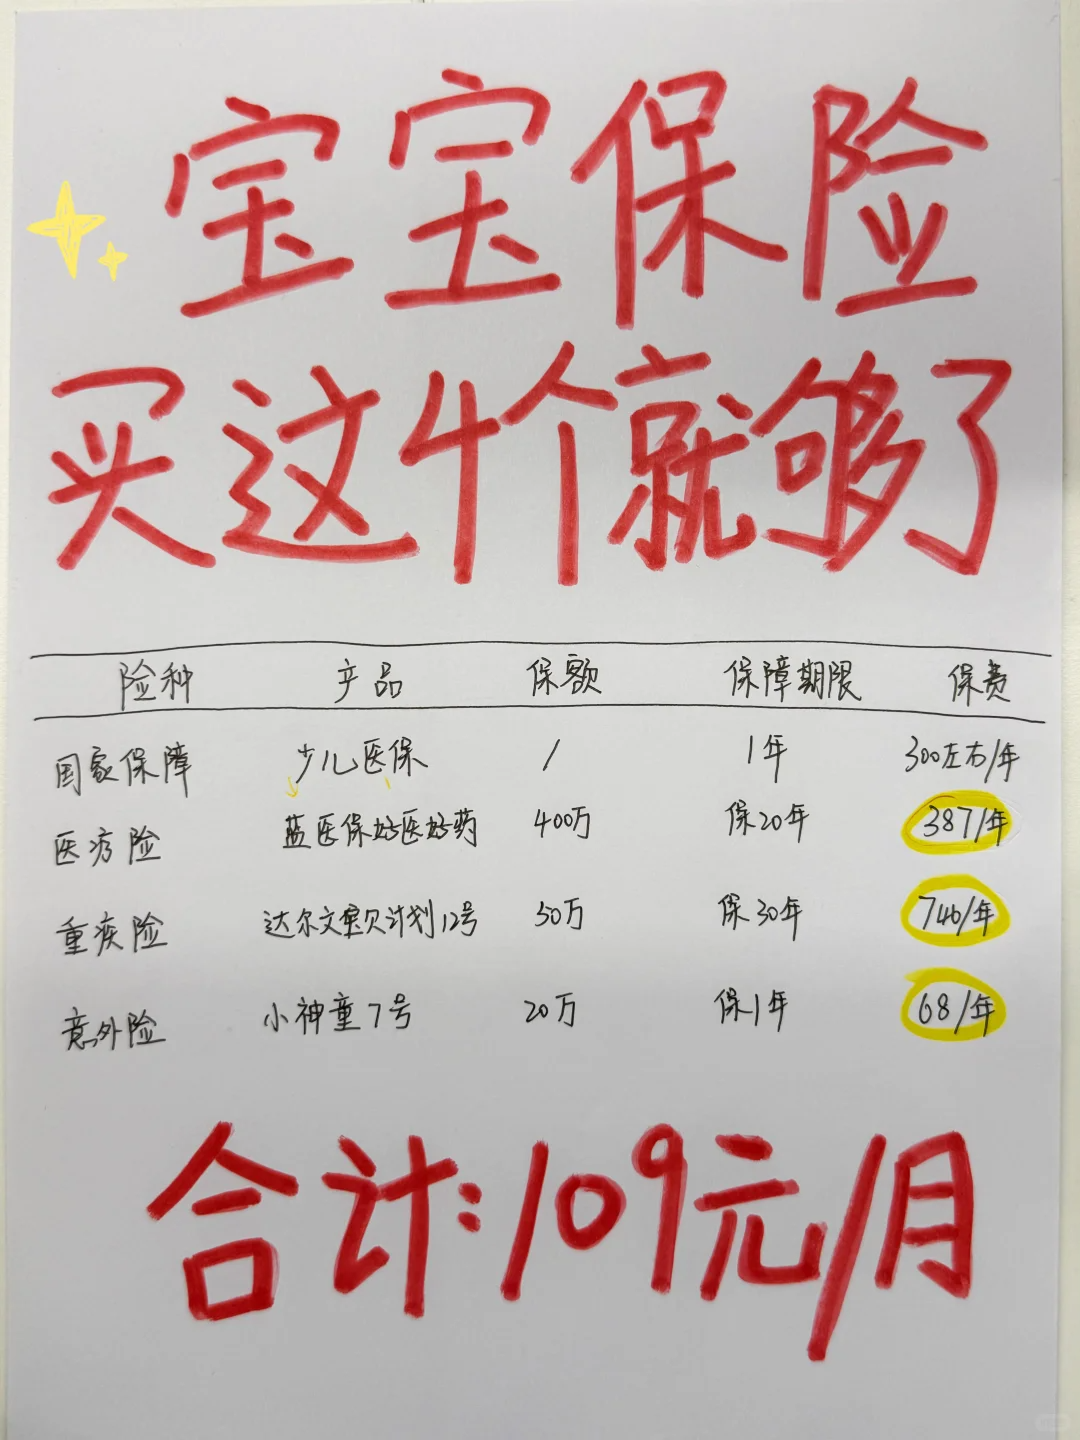 宝宝保险
买这4个就够了
险种 产品 保额 保障期限 保费
国家保障 少儿医保 / 1年 300左右/年
医疗险 蓝医保好医好药 400万 保20年 387/年
重疾险 达尔文宝贝计划12号 50万 保30年 746/年
意外险 小神童7号 20万 保1年 68/年
合计:109元/月